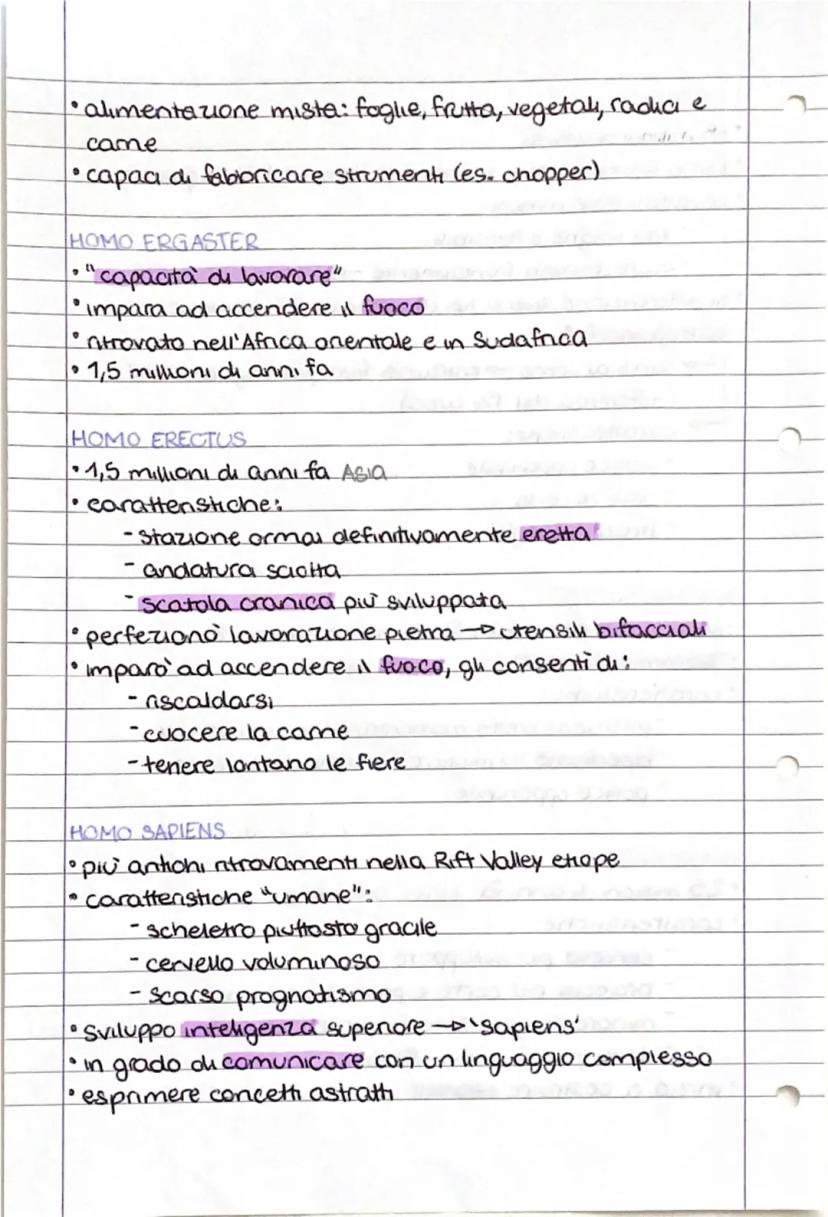 • alimentazione mista: foglie, frutta, vegetali, radici e
carne
• capaci di fabbricare strumenti (es. chopper)
HOMO ERGASTER
• "capacità di lavorare"
• impara ad accendere il fuoco
• ritrovato nell'Africa orientale e in Sudafrica
• 1,5 millioni di anni fa
HOMO ERECTUS
• 1,5 millioni di anni fa ASIA
• caratteristiche:
- stazione ormai definitivamente eretta
- andatura sciolta
- scatola cranica più sviluppata
• perfezionò lavorazione pietra → utensili bifacciali
• imparò ad accendere il fuoco, gli consentì di:
- riscaldarsi
- cuocere la carne
- tenere lontano le fiere
HOMO SAPIENS
• più antichi ritrovamenti nella Rift Valley etiope
• caratteristiche "umane":
- scheletro piuttosto gracile
- cervello voluminoso
- scarso prognatismo
• sviluppo inteligenza superiore → 'sapiens'
• in grado di comunicare con un linguaggio complesso
• esprimere concetti astratti